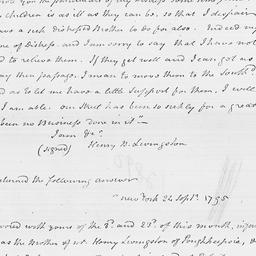 children is as ill as they can be, so that I despair
was a sick distressed Brother to do for also. Indeed my
me of distress. and I am sorry to say that I have not
d to relieve them. If they get well and I can get as
ay their passage. I mean to move them to the South.d
ad as to lend me a little support for them, I will
I am able. Our Street has been so sickly for a great
been no Business done in it"—
I am &c.
(signed) Henry B. Livingston
returned the following answer
"New York 24 Sept.r 1795
vored with yours of the 8.th and 21.st of this month, sign
as the Mother of Mr. Henry Livingston of Poughkeepsie, a